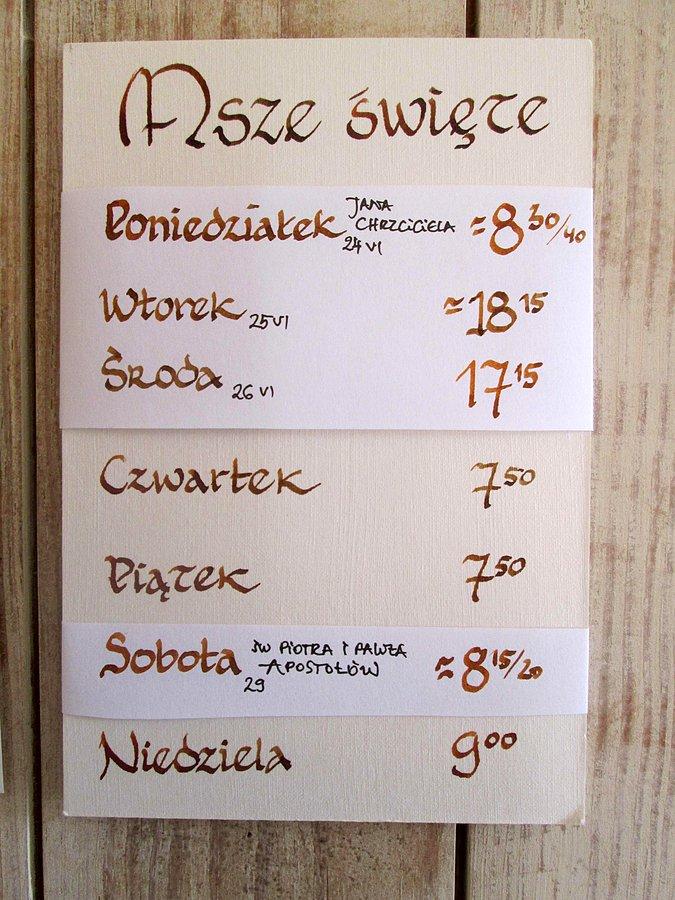 Msze święte
Poniedziałek JANA CHRZCICIELA 24 VI ≈ 8 30/40
Wtorek 25 VI ≈ 18 15
Środa 26 VI 17 15
Czwartek 7 50
Piątek 7 50
Sobota ŚW PIOTRA I PAWŁA APOSTOŁÓW 29 ≈ 8 15/20
Niedziela 9 00